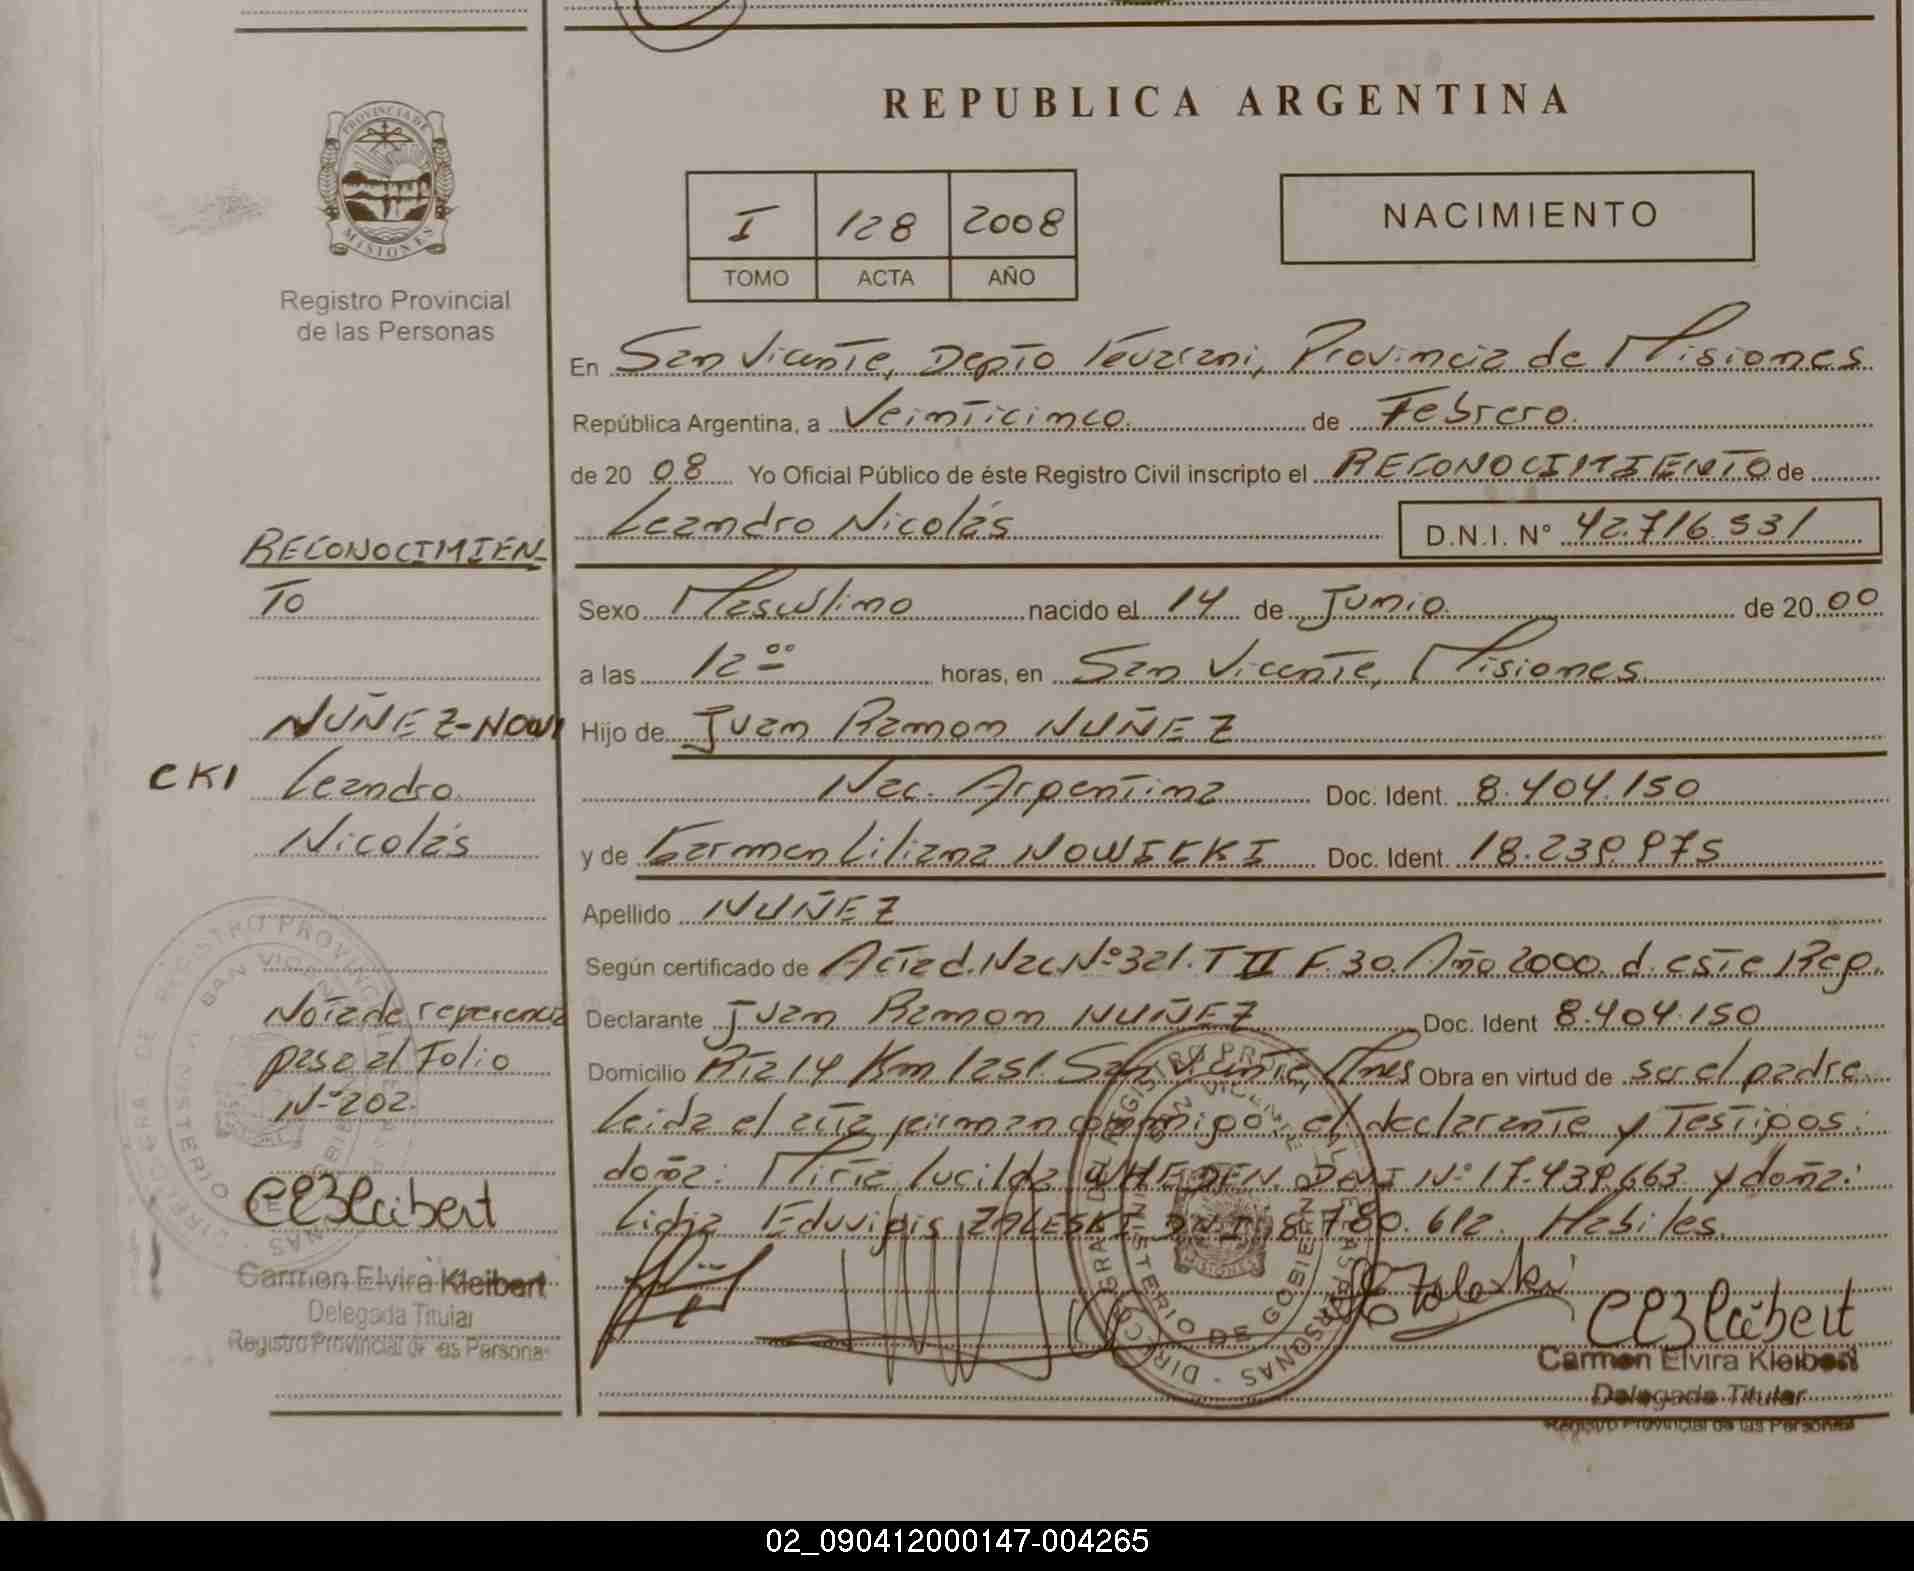 REPUBLICA ARGENTINA
PROVINCIA DE
MISIONES
Registro Provincial
de las Personas
I 128 2008
TOMO ACTA AÑO
NACIMIENTO
En San Vicente, Depto Provincia de Misiones
República Argentina, a Veinticinco de Febrero.
de 20 08 Yo Oficial Público de éste Registro Civil inscripto el RECONOCIMIENTO de
Leandro Nicolás
D.N.I. N° 42.716.531
Sexo Masculino nacido el 14 de Junio de 20 00
a las 12 00 horas, en San Vicente, Misiones
Hijo de Juan Ramon NUÑEZ
Nac. Argentina Doc. Ident. 8.404.150
y de Carmen Liliana NOWICKI Doc. Ident. 18.239.975
Apellido NUÑEZ
Según certificado de Acta d. Nac. N° 321. T II F. 30. Año 2000. d. este Reg.
Declarante Juan Ramon NUÑEZ Doc. Ident 8.404.150
Domicilio Rta 14 Km 1251. San Vicente, Mnes Obra en virtud de ser el padre
Leida el acta firman conmigo el declarante y Testigos:
doña: Mirta Lucilda DNI N° 17.439.663 y doña:
Lidia Eduvigis ZALESKI 780.612. Habiles.
RECONOCIMIEN-
TO
NUÑEZ-NOWI
CKI Leandro
Nicolás
Nota de referencia
pasa al Folio
N° 202.
CEKleibert
Carmen Elvira Kleibert
Delegada Titular
Registro Provincial de las Personas
Zaleski
CEKleibert
Carmen Elvira Kleibert
Delegada Titular
Registro Provincial de las Personas
02_090412000147-004265